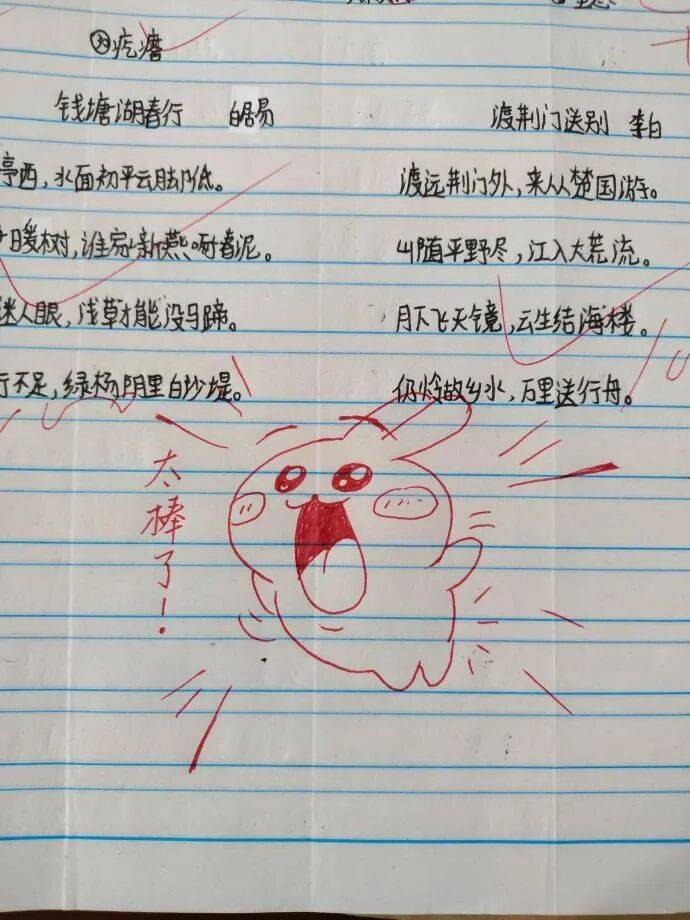 疙瘩
钱塘湖春行 白居易
亭西，水面初平云脚低。
暖树，谁家新燕啄春泥。
迷人眼，浅草才能没马蹄。
行不足，绿杨阴里白沙堤。
渡荆门送别 李白
渡远荆门外，来从楚国游。
山随平野尽，江入大荒流。
月下飞天镜，云生结海楼。
仍怜故乡水，万里送行舟。
太棒了！